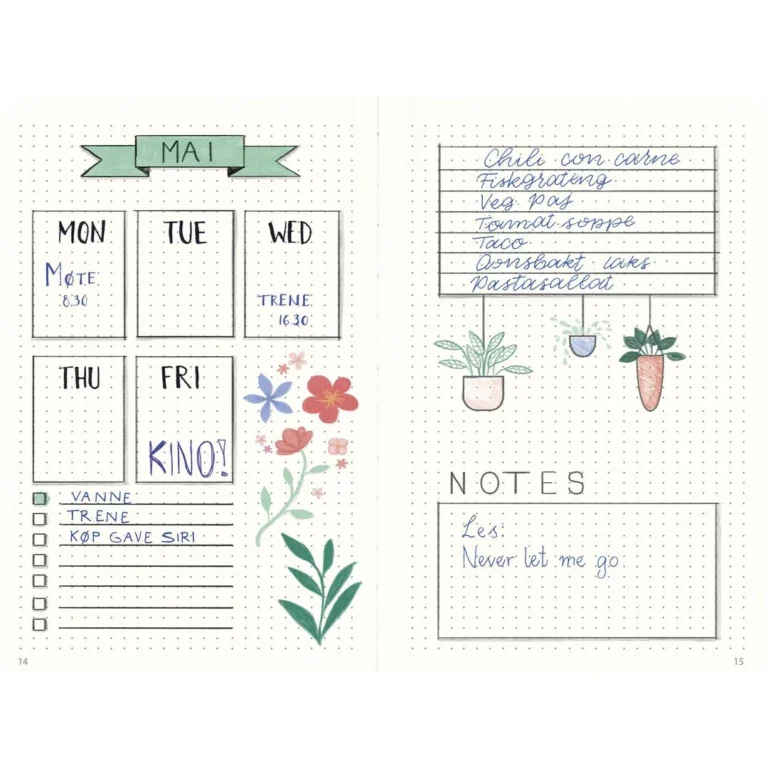 MAI
MON
TUE
WED
MØTE
8.30
TRENE
16.30
THU
FRI
KINO!
VANNE
TRENE
KØP GAVE SIRI
14
Chili con carne
Fiskegrateng
Veg. Paj
Tomat soppe
Taco
Ovnsbakt laks
Pastasallad
NOTES
Les:
Never let me go
15